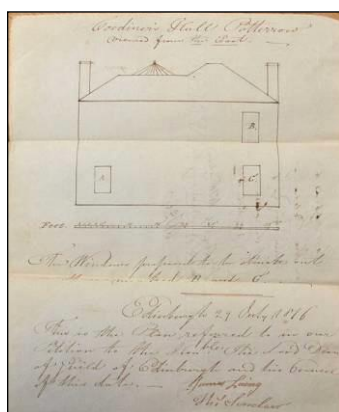 Cordiners Hall Potterrow
viewed from the East
B
A
C
Feet
The Windows proposed to be
B and C
Edinburgh 29 July 1816
This is the Plan referred to in our
Petition to the Honble. the Lord Dean
of Guild of Edinburgh and his Council
of this date. —
James Laing